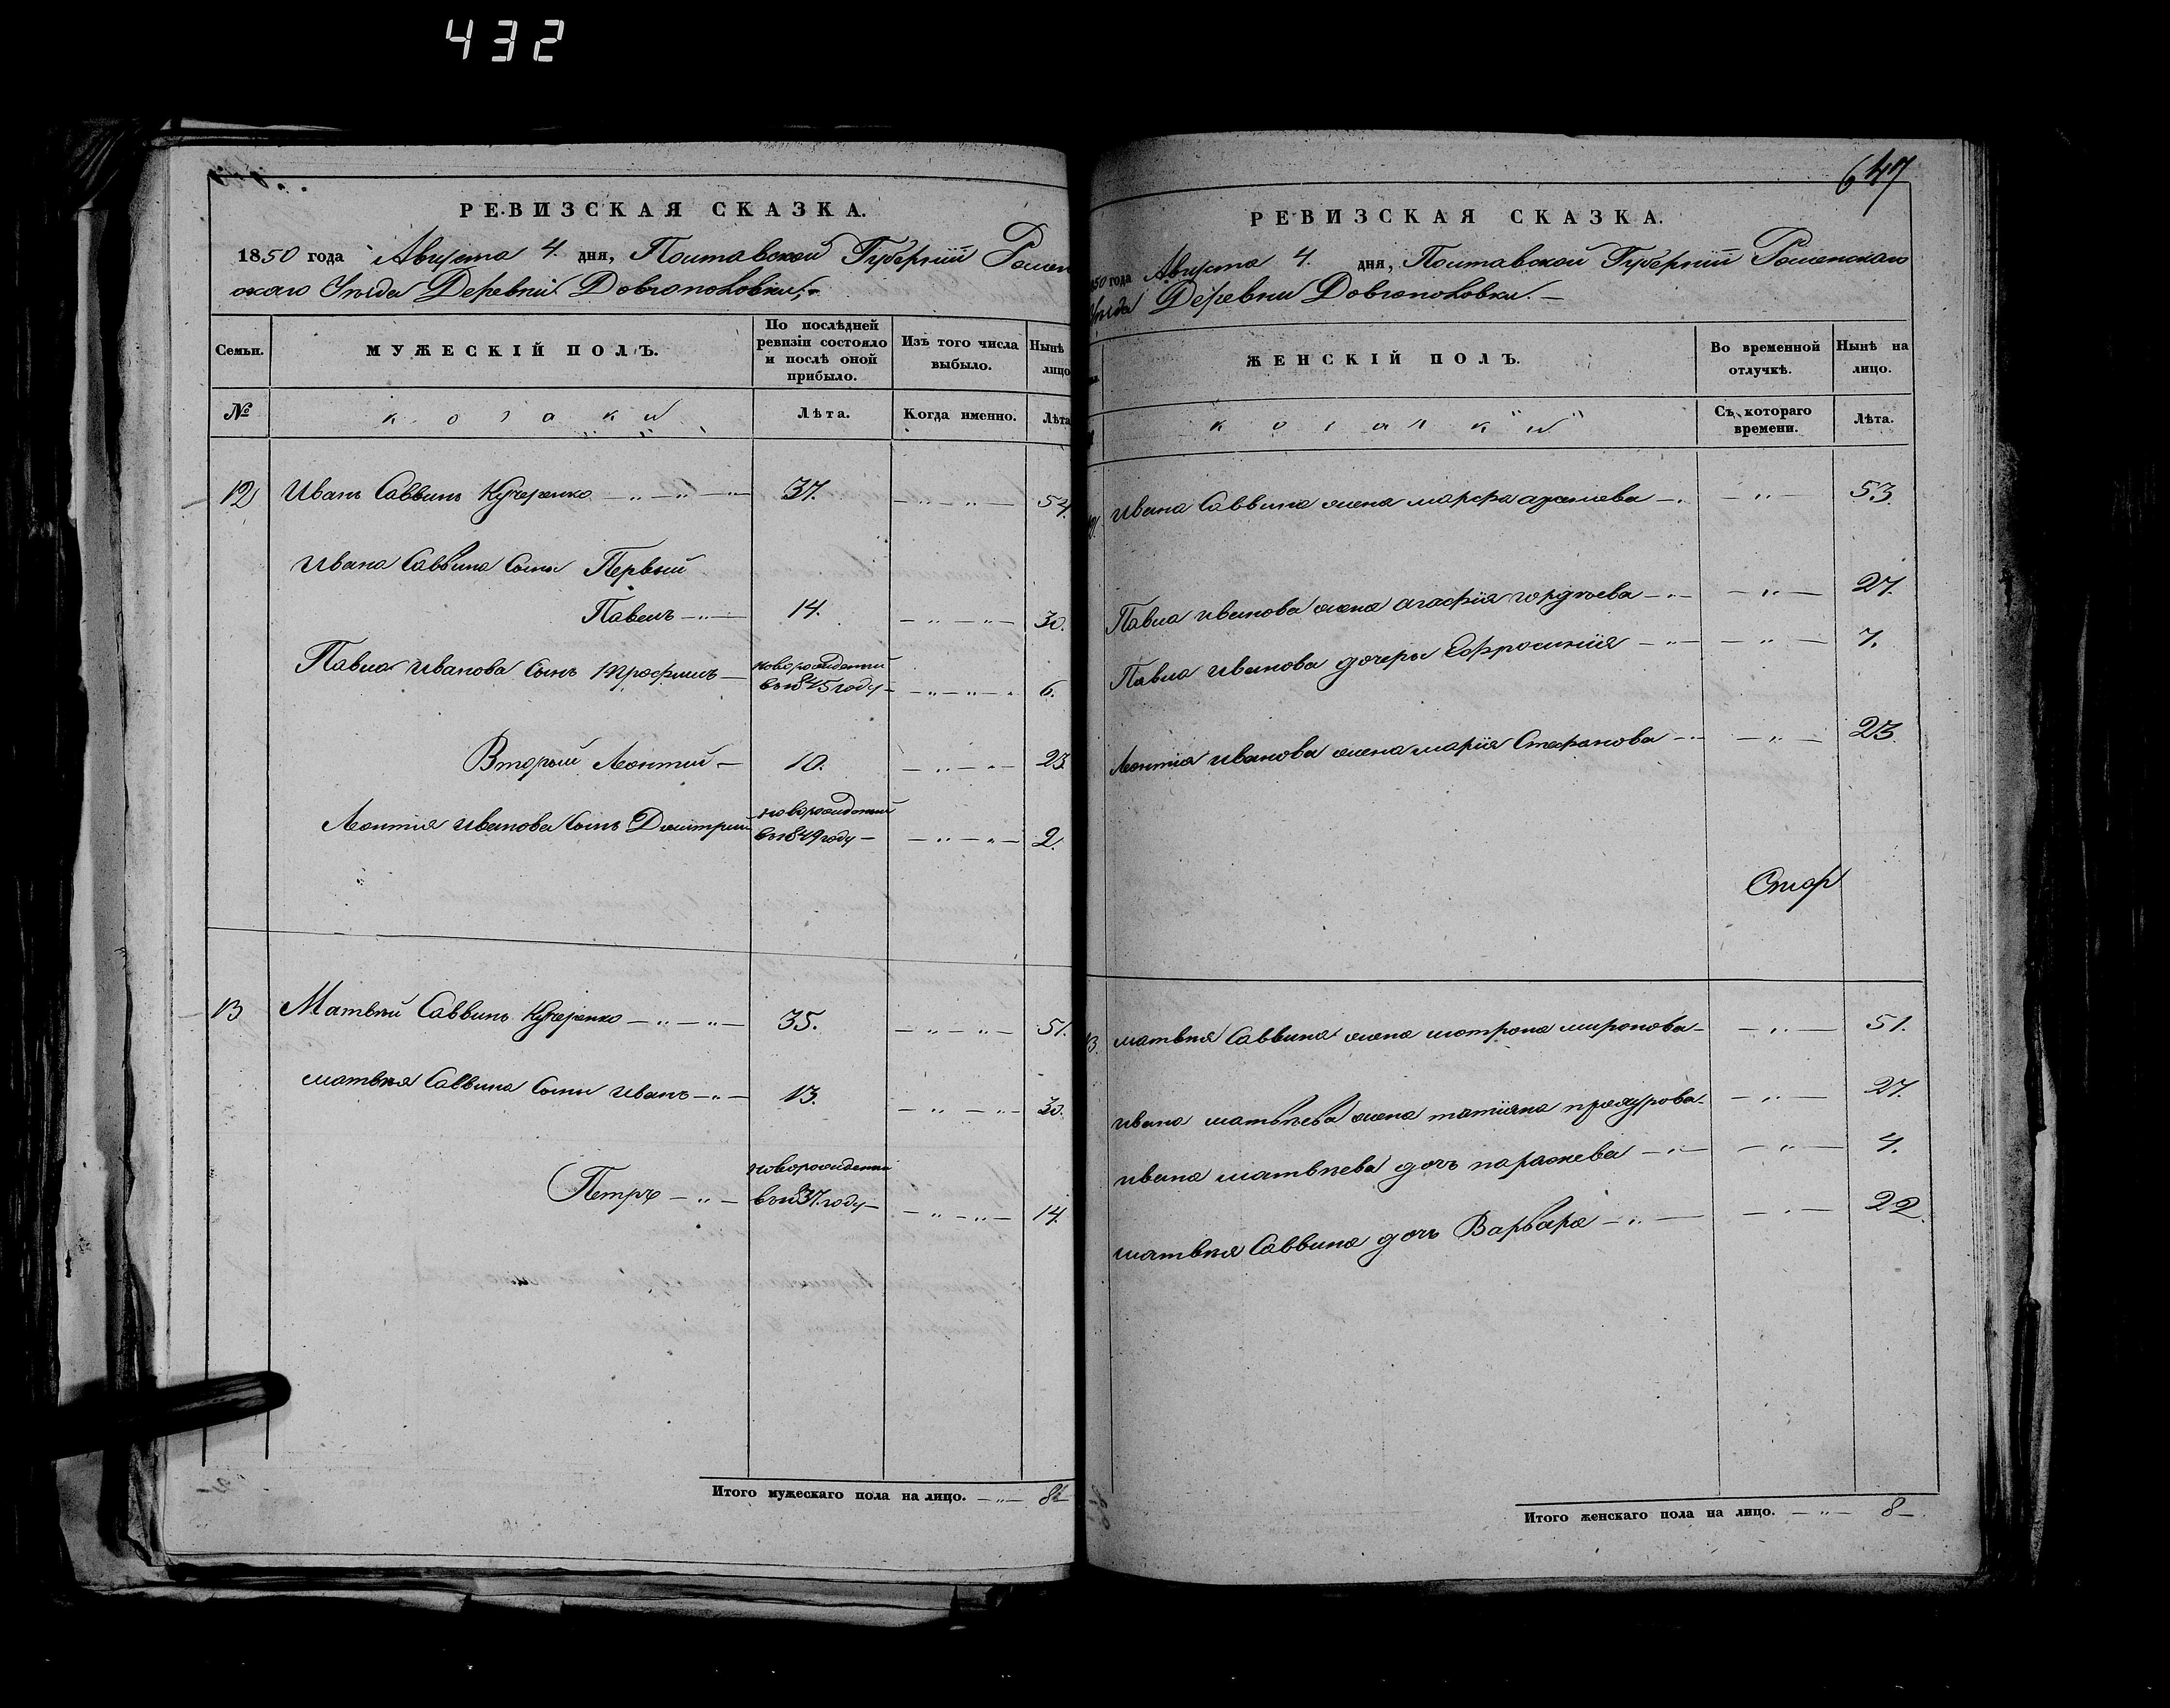 432
РЕВИЗСКАЯ СКАЗКА.
1850 года Августа 4. дня, Полтавской Губерніи Ромен
скаго Уѣзда Деревни Довгополовки,
Семьи.
МУЖЕСКІЙ ПОЛЪ.
По послѣдней ревизіи состояло и послѣ оной прибыло.
Изъ того числа выбыло.
Нынѣ лицо
№
козаки
Лѣта.
Когда именно.
Лѣта
12 Иванъ Саввинъ Кучеренко 37. 54.
Ивана Саввина Сыны Первый
Павелъ 14. 30.
Павла Иванова Сынъ Трофимъ новорожденный
въ 1845 году 6.
Вторый Леонтий 10. 23.
Леонтия Иванова Сынъ Дмитрий новорожденный
въ 1849 году 2.
13 Матвѣй Саввинъ Кучеренко 35. 51.
матвѣя Саввина Сыны иванъ 13. 30.
Петръ новорожденный
въ 1837. году 14.
Итого мужескаго пола на лицо. 8
647
РЕВИЗСКАЯ СКАЗКА.
850 года Августа 4. дня, Полтавской Губерніи Роменскаго
Уѣзда Деревни Довгополовки.
ЖЕНСКІЙ ПОЛЪ.
Во временной отлучкѣ.
Нынѣ на лицо.
козачки
Съ котораго времени.
Лѣта.
Ивана Саввина жена марфа 53.
Павла иванова жена агафія гордѣева 27.
Павла Иванова дочерь Ефросинія 7.
Леонтія иванова жена марія Стефанова 23.
13. матвѣя Саввина жена мотрона миронова 51.
ивана матвѣева жена татіяна 27.
ивана матвѣева дочь 4.
матвѣя Саввина дочь Варвара 22.
Итого женскаго пола на лицо. 8